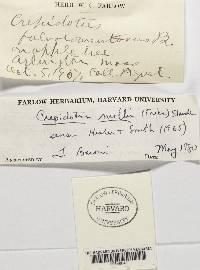 HERB. W. G. FARLOW
Crepidotus
fulvotomentosus Pk.
on apple tree
Arlington Mass
Oct. 5, 90, Coll.
FARLOW HERBARIUM, HARVARD UNIVERSITY
Crepidotus mollis (Fries) Staude
sensu Hesler & Smith (1965)
DATE May 1980
HARVARD